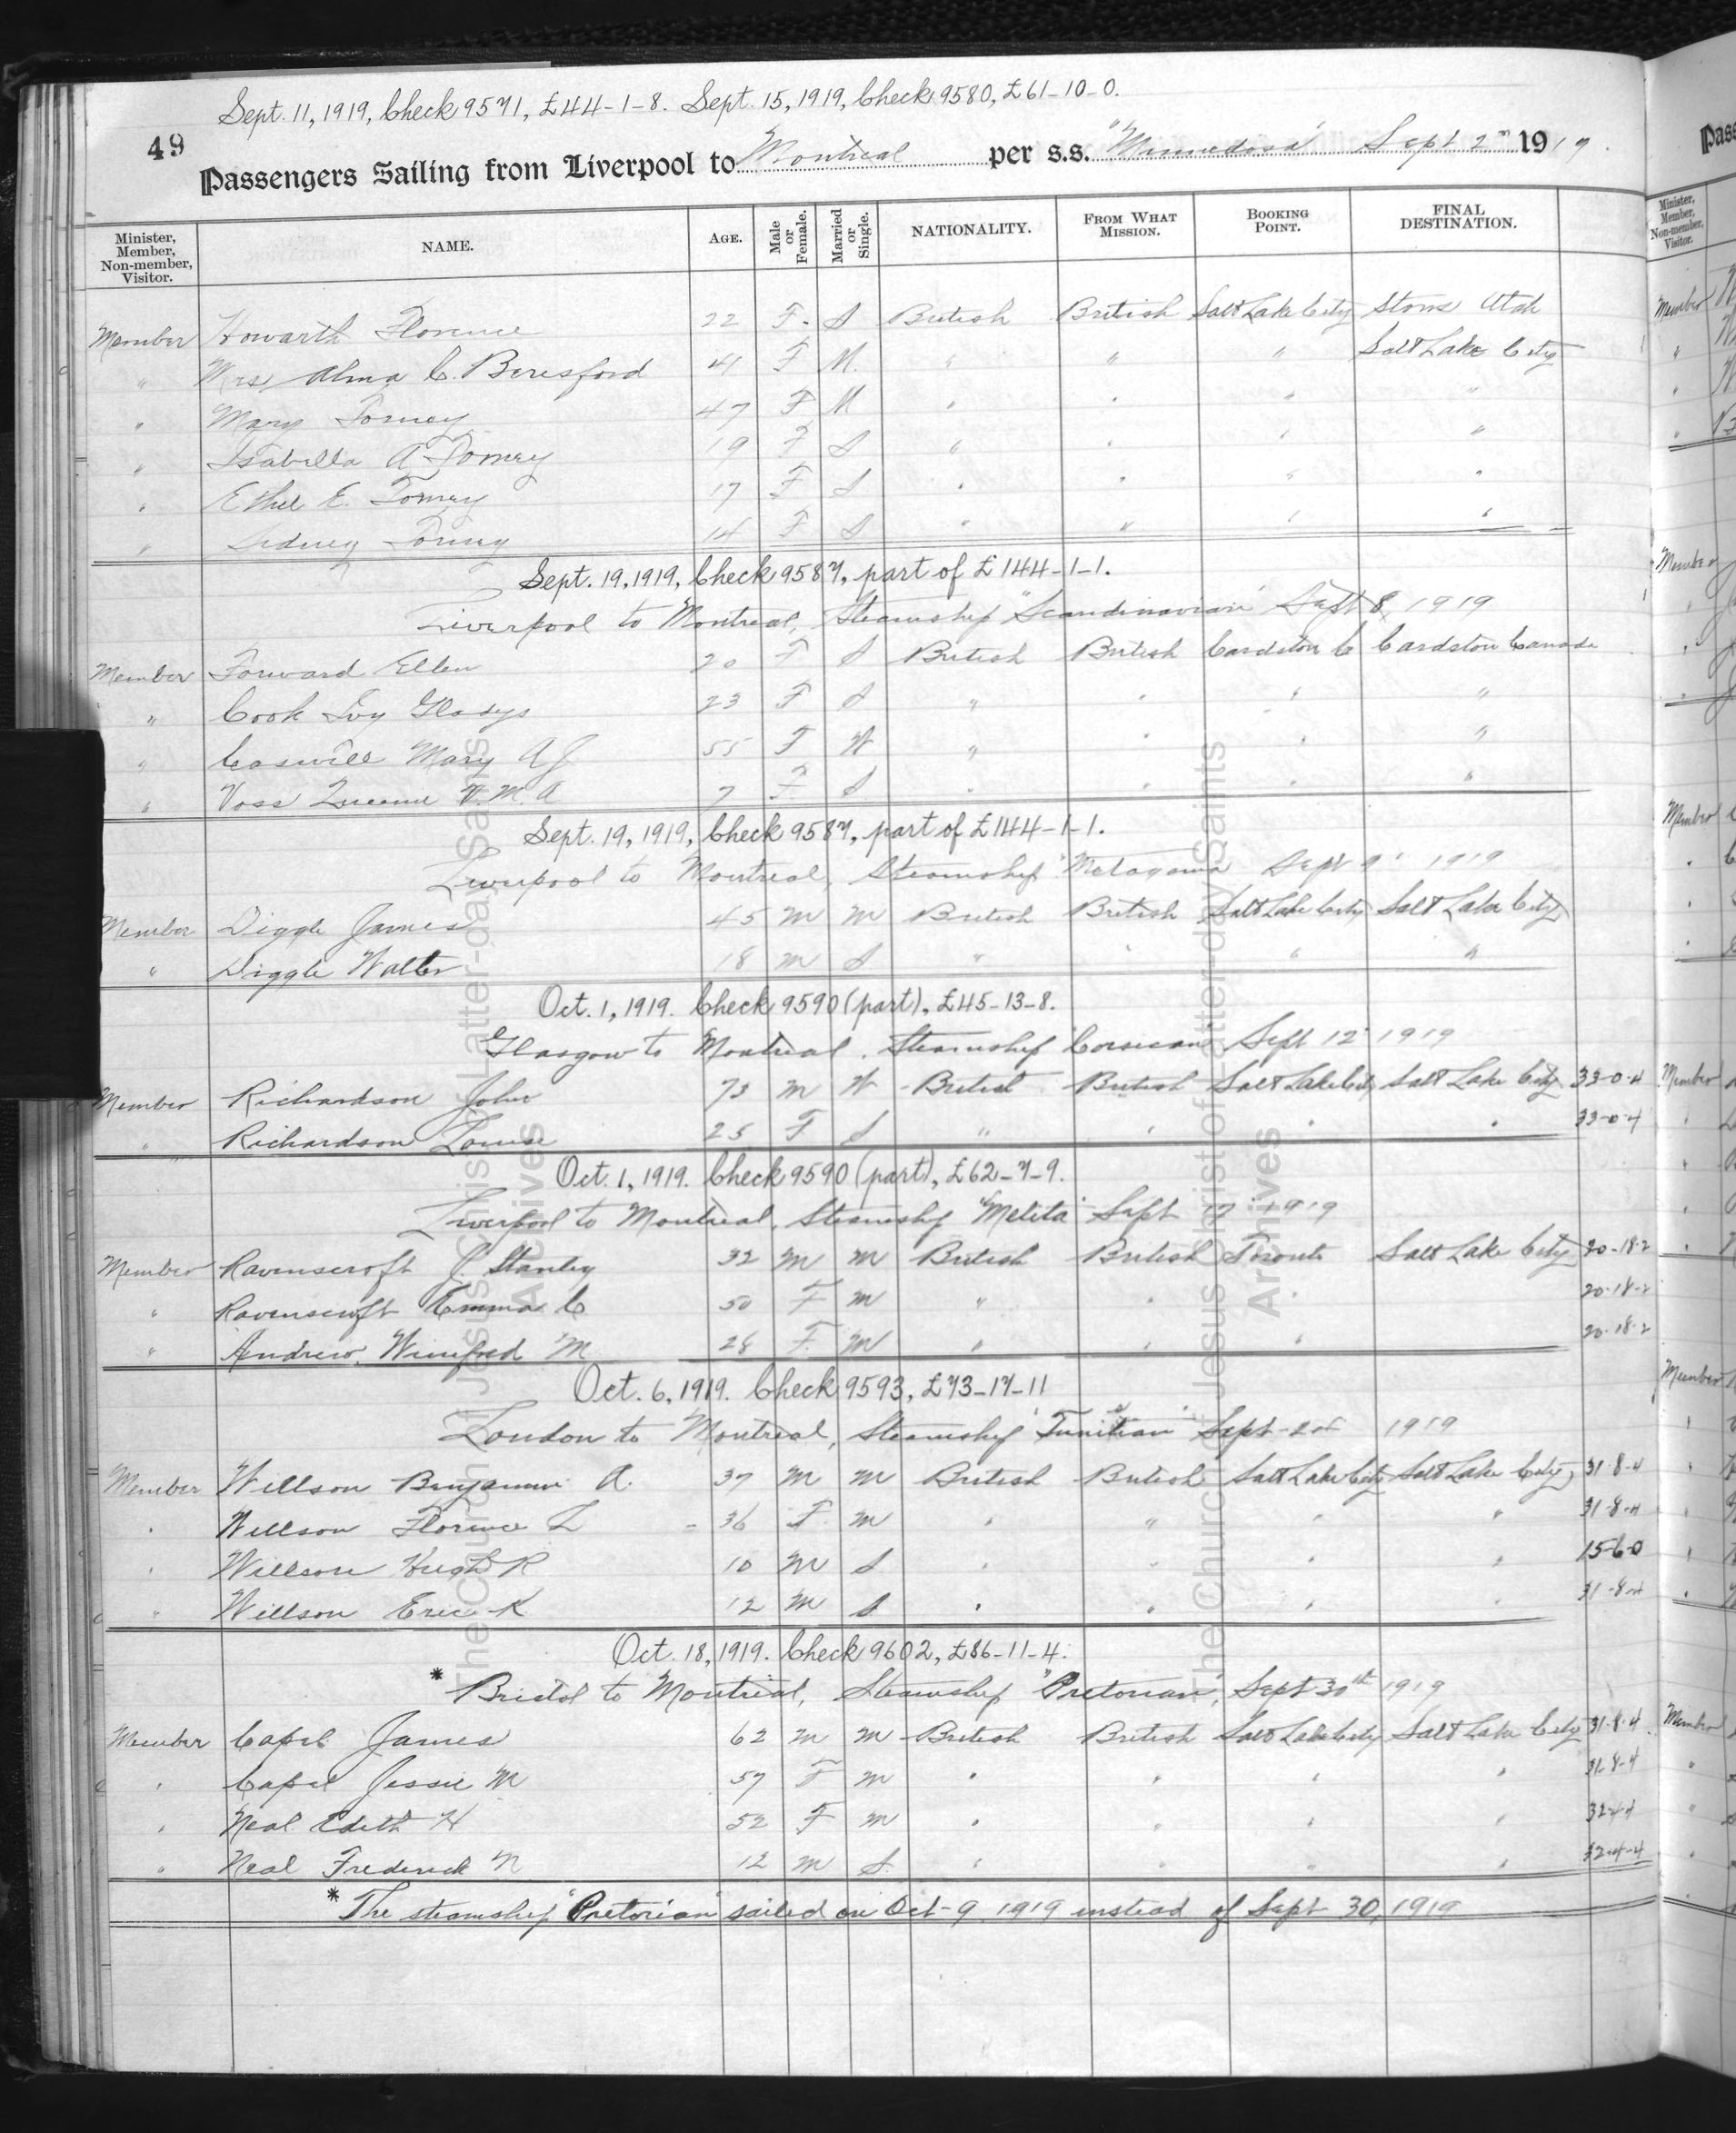 Sept. 11, 1919, Check 9571, £44-1-8. Sept. 15, 1919, Check 9580, £61-10-0.
49
Passengers Sailing from Liverpool to Montreal per s.s. "Minnedosa" Sept 2nd 1919.
Minister, Member, Non-member, Visitor. NAME. AGE. Male or Female. Married or Single. NATIONALITY. FROM WHAT MISSION. BOOKING POINT. FINAL DESTINATION.
Member Howarth Florence 22 F. S British British Salt Lake City Utah
" Mrs Alma C. Beresford 41 F M. " " " Salt Lake City
" Mary Tomey 47 F M " " " "
" Isabella A Tomey 19 F S " " " "
" Ethel E. Tomey 17 F S " " " "
" Sidney Tomey 14 F S " " " "
Sept. 19, 1919, Check 9587, part of £144-1-1.
Liverpool to Montreal, Steamship "Scandinavian" Sept 8, 1919
Member Forward Ellen 20 F S British British Cardston C Cardston Canada
" Cook Ivy Gladys 23 F S " " " "
" Caswill Mary A J 55 F W " " " "
" Voss V. M. A 7 F S " " " "
Sept. 19, 1919, Check 9587, part of £144-1-1.
Liverpool to Montreal, Steamship "Metagama" Sept 9" 1919
Member Diggle James 45 M M British British Salt Lake City Salt Lake City
" Diggle Walter 18 M S " " " "
Oct. 1, 1919. Check 9590 (part), £45-13-8.
Glasgow to Montreal, Steamship Corsican Sept 12" 1919
Member Richardson John 73 M W British British Salt Lake City Salt Lake City 33-0-4
" Richardson Louise 25 F S " " " " 33-0-4
Oct. 1, 1919. Check 9590 (part), £62-7-9.
Liverpool to Montreal, Steamship "Melita" Sept 17" 1919
Member Ravenscroft J. Stanley 32 M M British British Toronto Salt Lake City 20-18-2
" Ravenscroft Emma C 50 F M " " " 20-18-2
" Andrew, Winifred M 28 F. M " " " 20-18-2
Oct. 6, 1919. Check 9593, £73-17-11
London to Montreal, Steamship "Tunisian" Sept 1919
Member Willson Benjamin A. 37 M M British British Salt Lake City Salt Lake City 31-8-4
" Willson Florence L 36 F. M " " " " 31-8-4
" Willson Hugh R 10 M S " " " " 15-6-0
" Willson Eric K 12 M S " " " " 31-8-4
Oct. 18, 1919. Check 9602, £86-11-4.
* Bristol to Montreal, Steamship "Pretorian", Sept 30th 1919
Member Capel James 62 M M British British Salt Lake City Salt Lake City 31-8-4
" Capel Jessie M 57 F M " " " " 31-8-4
" Neal Edith H 52 F M " " " " 32-4-4
" Neal Frederick N 12 M S. " " " " 32-4-4
* The steamship "Pretorian" sailed on Oct-9 1919 instead of Sept 30, 1919
The Church of Jesus Christ of Latter-day Saints Archives
The Church of Jesus Christ of Latter-day Saints Archives